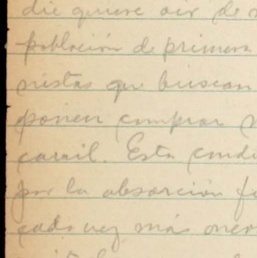 die quiere oir de
población de primera
nistas que buscan
ponen comprar
carail. Esta condi
por la absorción
cada vez más oner